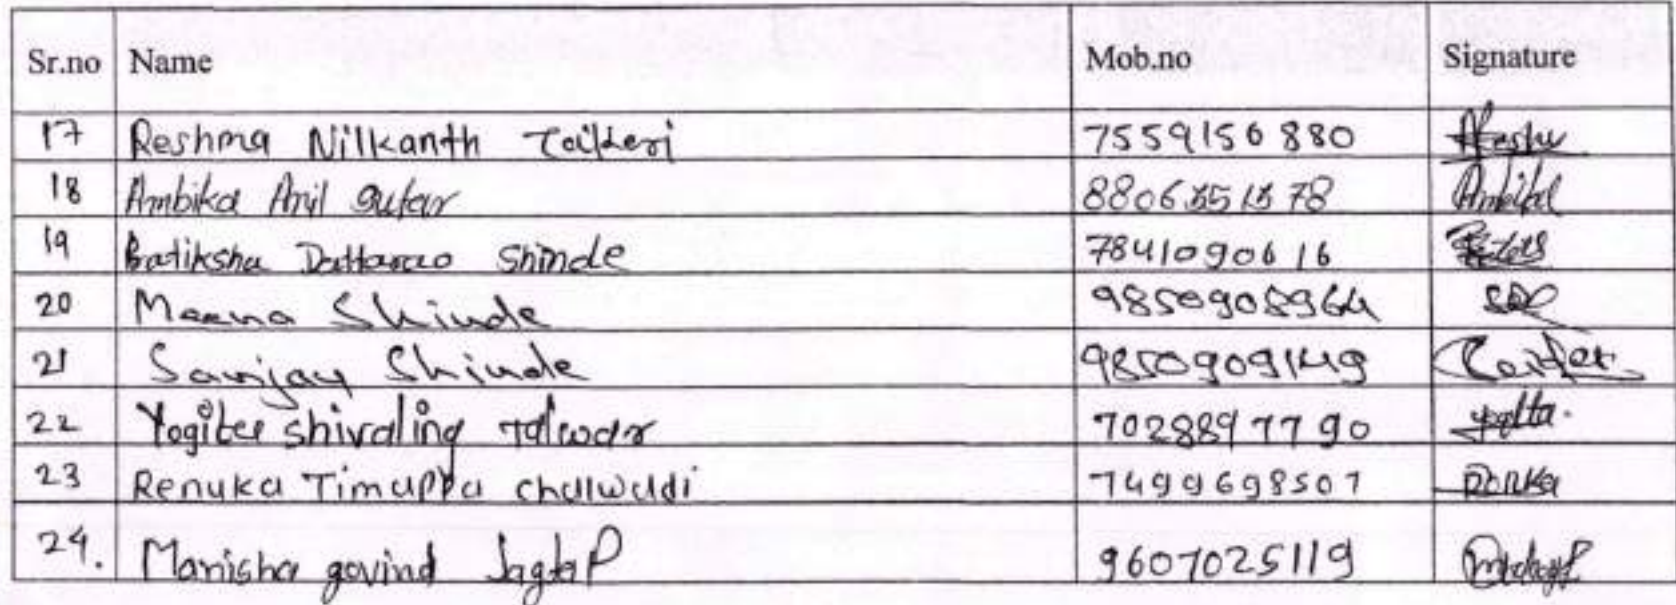 Sr.no Name Mob.no Signature
17 Reshma Nilkanth 7559156880
18 Ambika Anil Sutar 8806551578 Ambika
19 Pratiksha Dattarao Shinde 7841090616
20 Meena Shinde 9850905964
21 Sanjay Shinde 9850909149
22 Yogita shivaling Talwar 7028897790 yogita.
23 Renuka Timappa chalwadi 7499698507 Renuka
24. Manisha govind Jagtap 9607025119